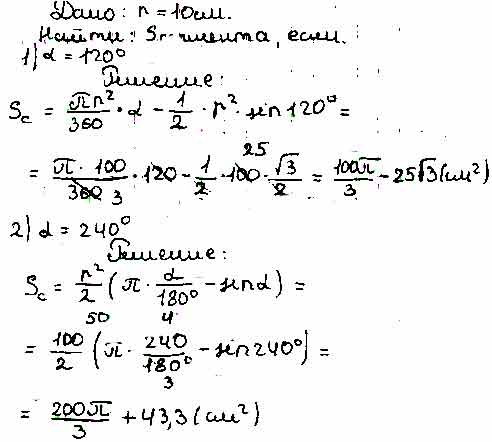 Дано: r = 10 см.
Найти: Sсегмента, если.
1) α = 120°
Решение:
Sc = πr²/360 · α − 1/2 · r² · sin 120° =
= π · 100/360 3 · 120 − 1/2 · 100 25 · √3/2 = 100π/3 − 25√3 (см²)
2) α = 240°
Решение:
Sc = r²/2 (π · α/180° − sin α) =
= 100/2 50 (π · 240 4/180° 3 − sin 240°) =
= 200π/3 + 43,3 (см²)